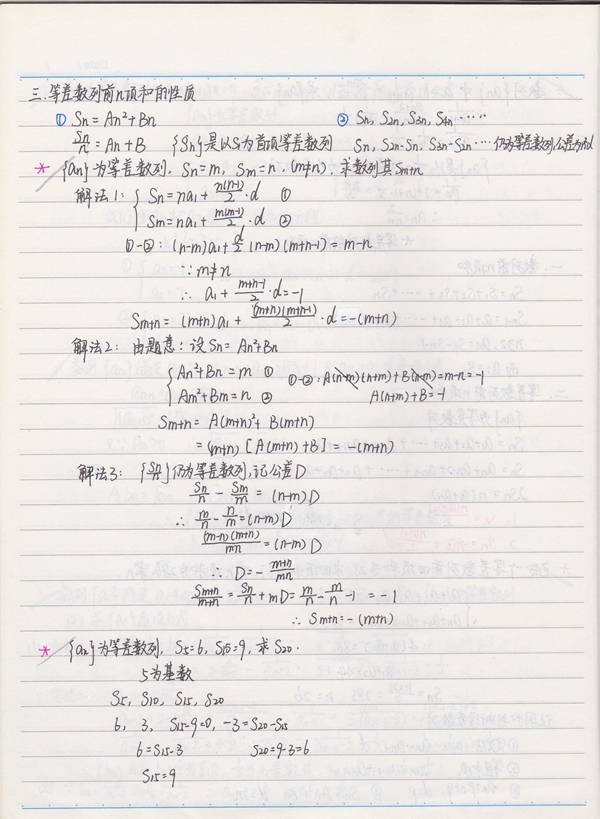 三.等差数列前n项和的性质
① Sn=An²+Bn ② Sn, S2n, S3n, S4n ……
Sn/n=An+B {Sn/n}是以S1为首项等差数列 Sn, S2n-Sn, S3n-S2n …仍为等差数列,公差为n²d
* {an}为等差数列, Sn=m, Sm=n, (m≠n), 求数列其Sm+n
解法1: { Sn=na1+n(n-1)/2·d ①
Sm=na1+m(m-1)/2·d ②
①-②: (n-m)a1+d/2(n-m)(m+n-1)=m-n
∵m≠n
∴ a1+(m+n-1)/2·d=-1
Sm+n=(m+n)a1+(m+n)(m+n-1)/2·d=-(m+n)
解法2: 由题意:设Sn=An²+Bn
{ An²+Bn=m ① ①-②:A(n-m)(n+m)+B(n-m)=m-n=-1
Am²+Bm=n ② A(n+m)+B=-1
Sm+n=A(m+n)²+B(m+n)
=(m+n)[A(m+n)+B]=-(m+n)
解法3: {Sn/n}仍为等差数列,记公差D
Sn/n-Sm/m=(n-m)D
∴ m/n-n/m=(n-m)D
(m-n)(m+n)/mn=(n-m)D
∴D=-(m+n)/mn
Sm+n/m+n=Sn/n+mD=m/n-m/n-1=-1
∴ Sm+n=-(m+n)
* {an}为等差数列, S5=6, S15=9, 求S20.
5为基数
S5, S10, S15, S20
6, 3, S15-9=0, -3=S20-S15
6=S15-3 S20=9-3=6
S15=9